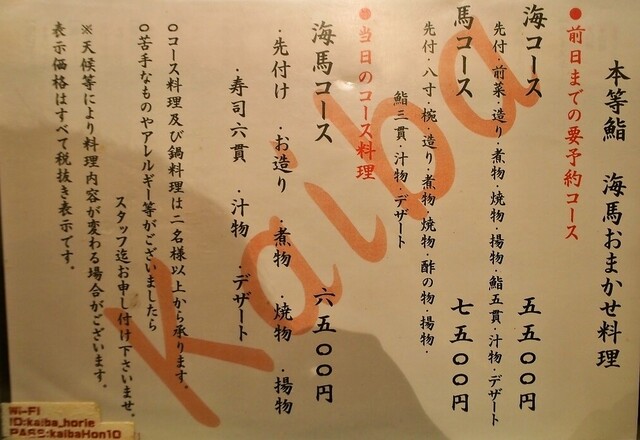 本等鮨 海馬おまかせ料理
●前日までの要予約コース
海コース 五五〇〇円
先付・前菜・造り・煮物・焼物・揚物・鮨五貫・汁物・デザート
馬コース 七五〇〇円
先付・八寸・椀・造り・煮物・焼物・酢の物・揚物・
鮨三貫・汁物・デザート
●当日のコース料理
海馬コース 六五〇〇円
・先付け ・お造り ・煮物 ・焼物 ・揚物
・寿司六貫 ・汁物 ・デザート
○コース料理及び鍋料理は二名様以上から承ります。
○苦手なものやアレルギー等がございましたら
スタッフ迄お申し付け下さいませ。
※天候等により料理内容が変わる場合がございます。
表示価格はすべて税抜き表示です。
Kaiba
Wi-Fi
ID:kaiba_horie
PASS:kaibaHon10